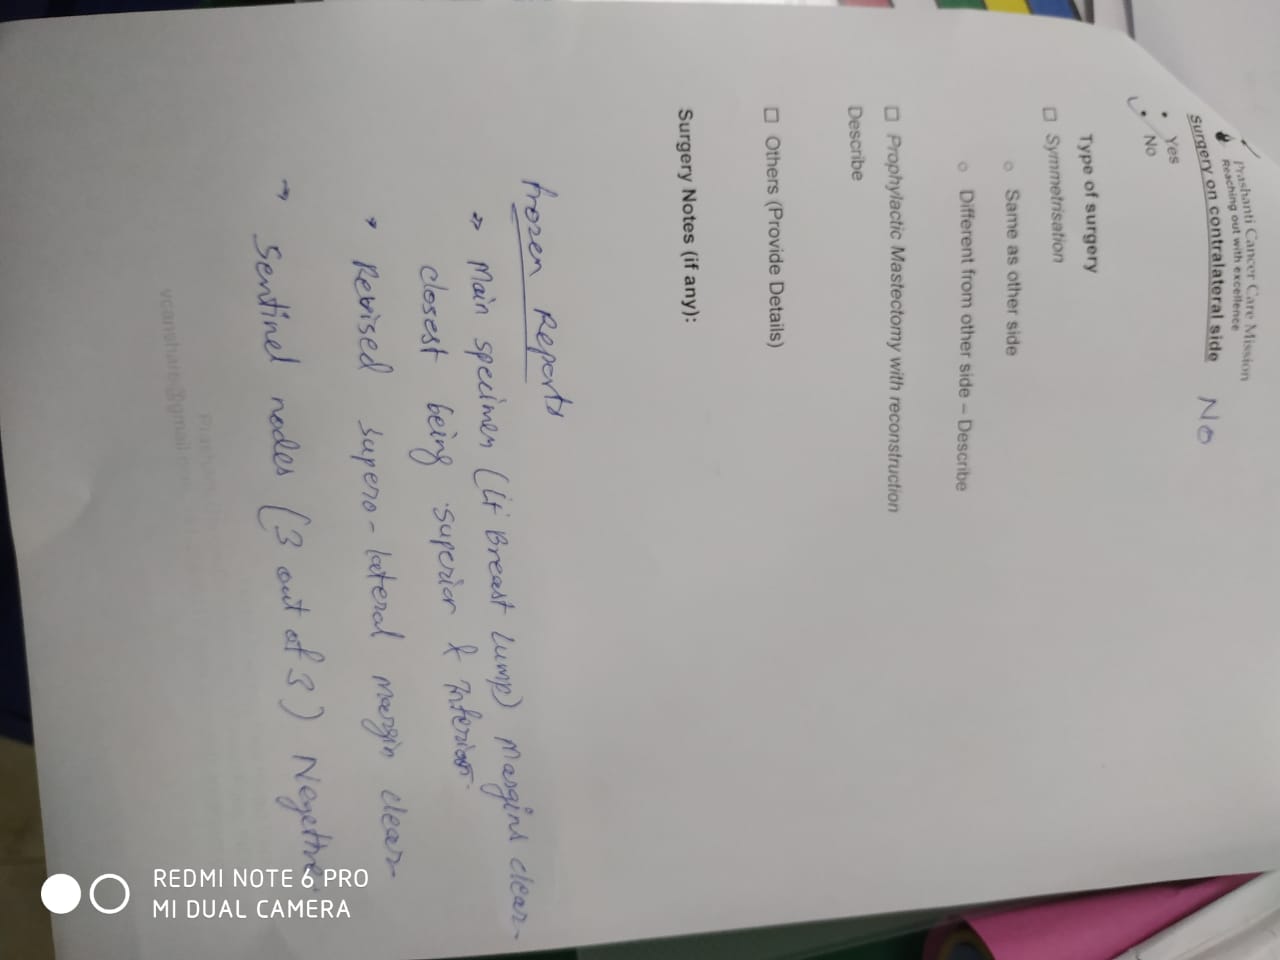 Prashanti Cancer Care Mission
Reaching out with excellence
Surgery on contralateral side No
• Yes
• No
Type of surgery
☐ Symmetrisation
○ Same as other side
○ Different from other side – Describe
☐ Prophylactic Mastectomy with reconstruction
Describe
☐ Others (Provide Details)
Surgery Notes (if any):
Frozen Reports
→ Main specimen (Lt Breast Lump) Margins clear
closest being superior & Inferior.
→ Revised supero-lateral margin clear
→ Sentinel nodes (3 out of 3) Negative
REDMI NOTE 6 PRO
MI DUAL CAMERA